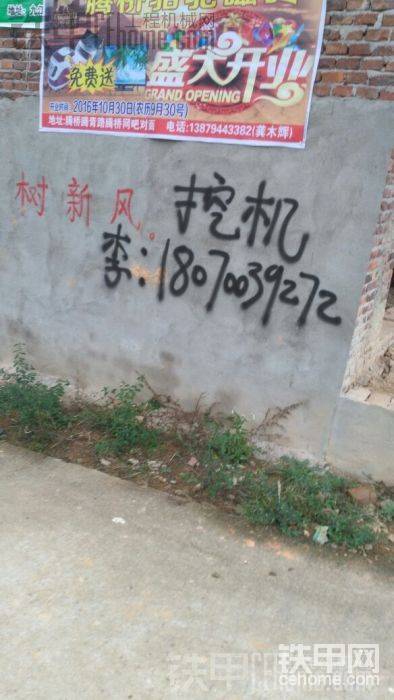 腾桥骆驼瓷砖
免费送
盛大开业
GRAND OPENING
开业时间:2016年10月30日(农历9月30号)
地址:腾桥腾青路腾桥网吧对面 电话:13879443382(龚木辉)
树新风 挖机
李:18070039272
铁甲网
cehome.com